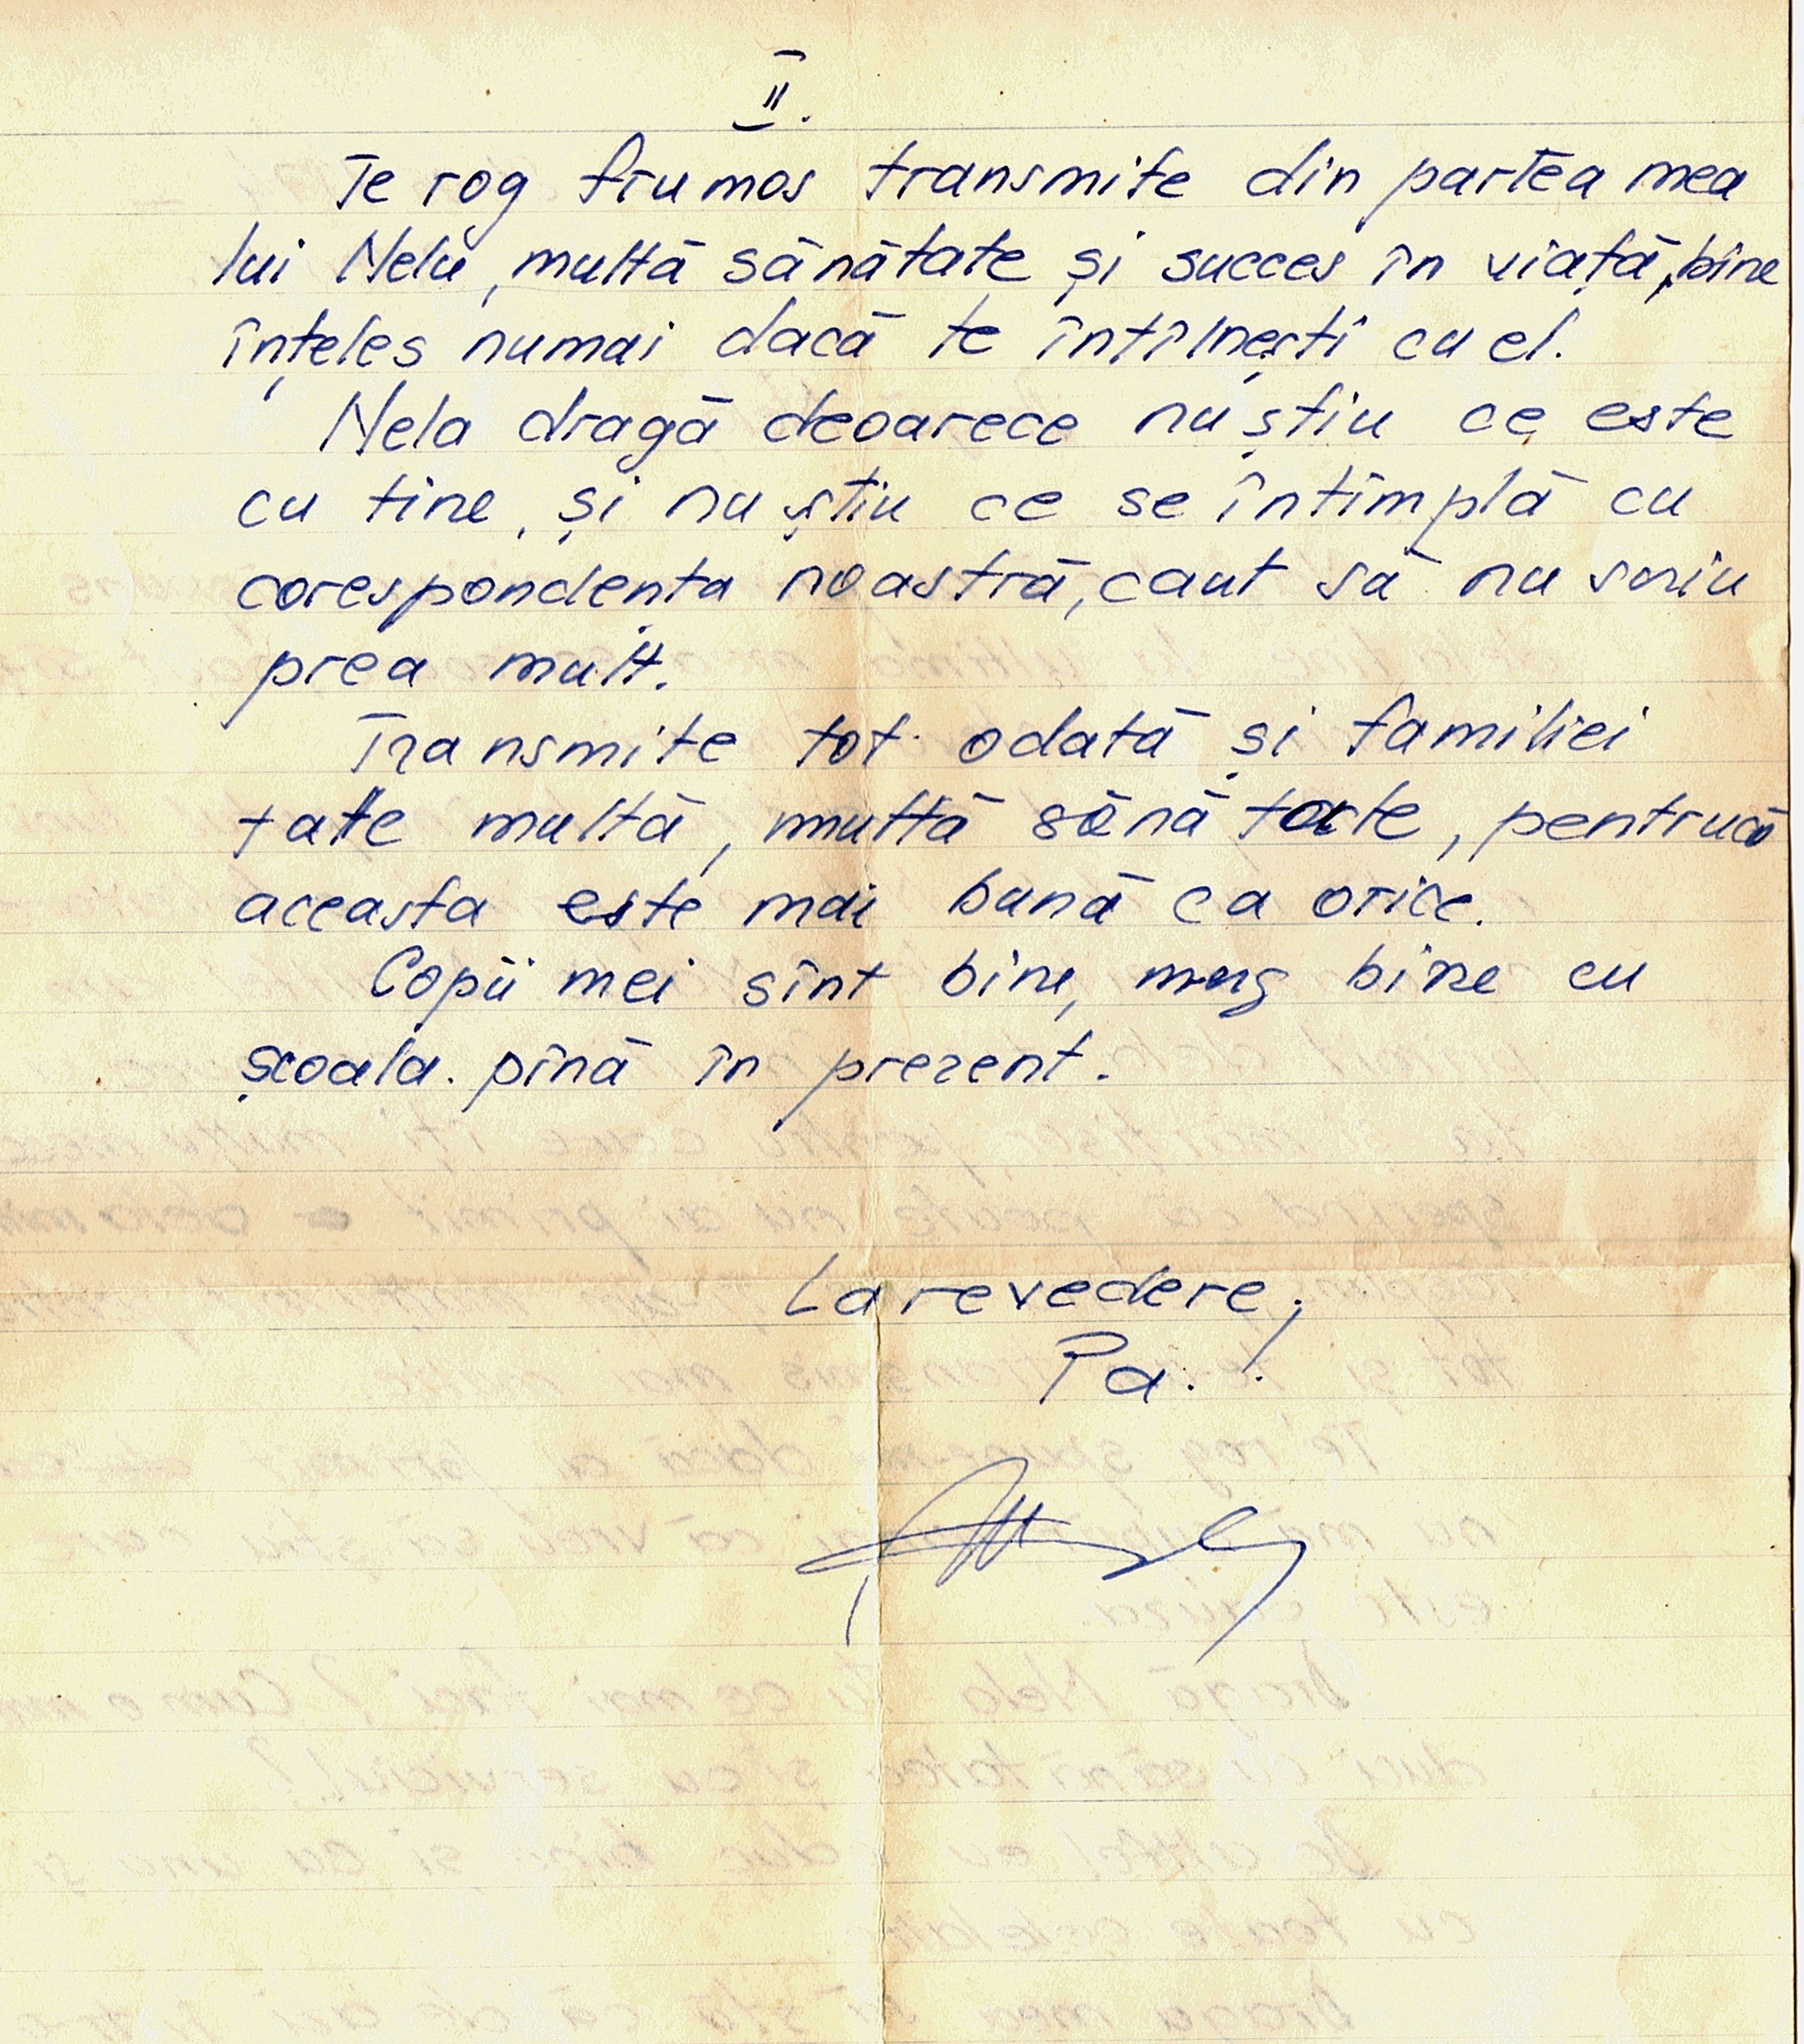 II.
Te rog frumos transmite din partea mea
lui Nelu, multă sănătate și succes în viață, bine
înțeles numai dacă te întîlnești cu el.
Nela dragă deoarece nu știu ce este
cu tine, și nu știu ce se întîmplă cu
corespondența noastră, caut să nu scriu
prea mult.
Transmite tot odată și familiei
tale multă, multă sănătate, pentrucă
aceasta este mai bună ca orice.
Copii mei sînt bine, merg bine cu
școala. pînă în prezent.
La revedere;
Pa!